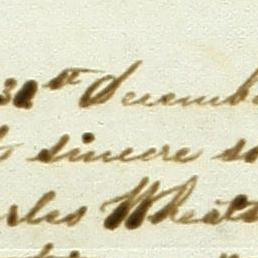 31st Decemb
sincere so
rles Wheats